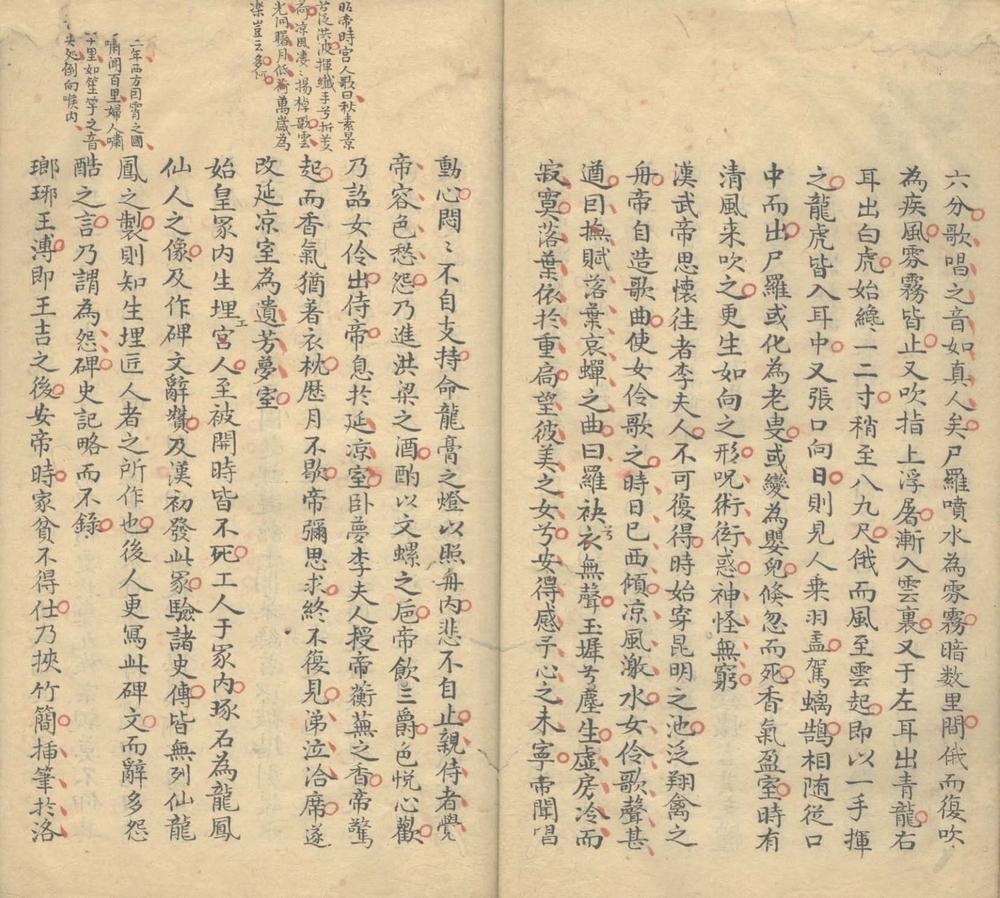 六分歌唱之音如真人矣尸羅噴水為雰霧暗数里間俄而復吹
為疾風雰霧皆止又吹指上浮屠漸入雲裏又于左耳出青龍右
耳出白虎始纔一二寸稍至八九尺俄而風至雲起即以一手揮
之龍虎皆入耳中又張口向日則見人乗羽盖駕螭鵠相随從口
中而出尸羅或化為老叟或變為嬰兒倏忽而死香氣盈室時有
清風来吹之更生如向之形呪術衒惑神怪無窮
漢武帝思懷往者李夫人不可復得時始穿昆明之池泛翔禽之
舟帝自造歌曲使女伶歌之時日已西傾凉風激水女伶歌聲甚
遒曰撫賦落葉哀蟬之曲曰羅袂兮衣無聲玉墀兮塵生虛房冷而
寂寞落葉依於重扃望彼美之女兮安得感予心之未寧帝聞唱
動心悶〻不自支持命龍膏之燈以照舟內悲不自止親侍者覺
帝容色愁怨乃進洪梁之酒酌以文螺之巵帝飲三爵色悅心歡
乃詔女伶出侍帝息於延凉室卧夢李夫人授帝蘅蕪之香帝驚
起而香氣猶著衣枕歴月不歇帝彌思求終不復見涕泣洽席遂
改延凉室為遺芳夢室
始皇冢内生埋工宮人至被開時皆不死工人于冢内琢石為龍鳳
仙人之像及作碑文辭讚及漢初發此冢驗諸史傳皆無列仙龍
鳳之製則知生埋匠人者之所作也後人更寫此碑文而辭多怨
酷之言乃謂為怨碑史記略而不錄
瑯琊王溥即王吉之後安帝時家貧不得仕乃挾竹簡插筆於洛
昭帝時宮人歌曰秋素景
兮泛洪波揮纖手兮折芰
荷凉風凄〻揚棹歌雲
光開曙月低荷萬歲為
樂豈云多何
二年西方因霄之國
嘯聞百里婦人嘯
十里如笙竽之音
尖処倒向喉内